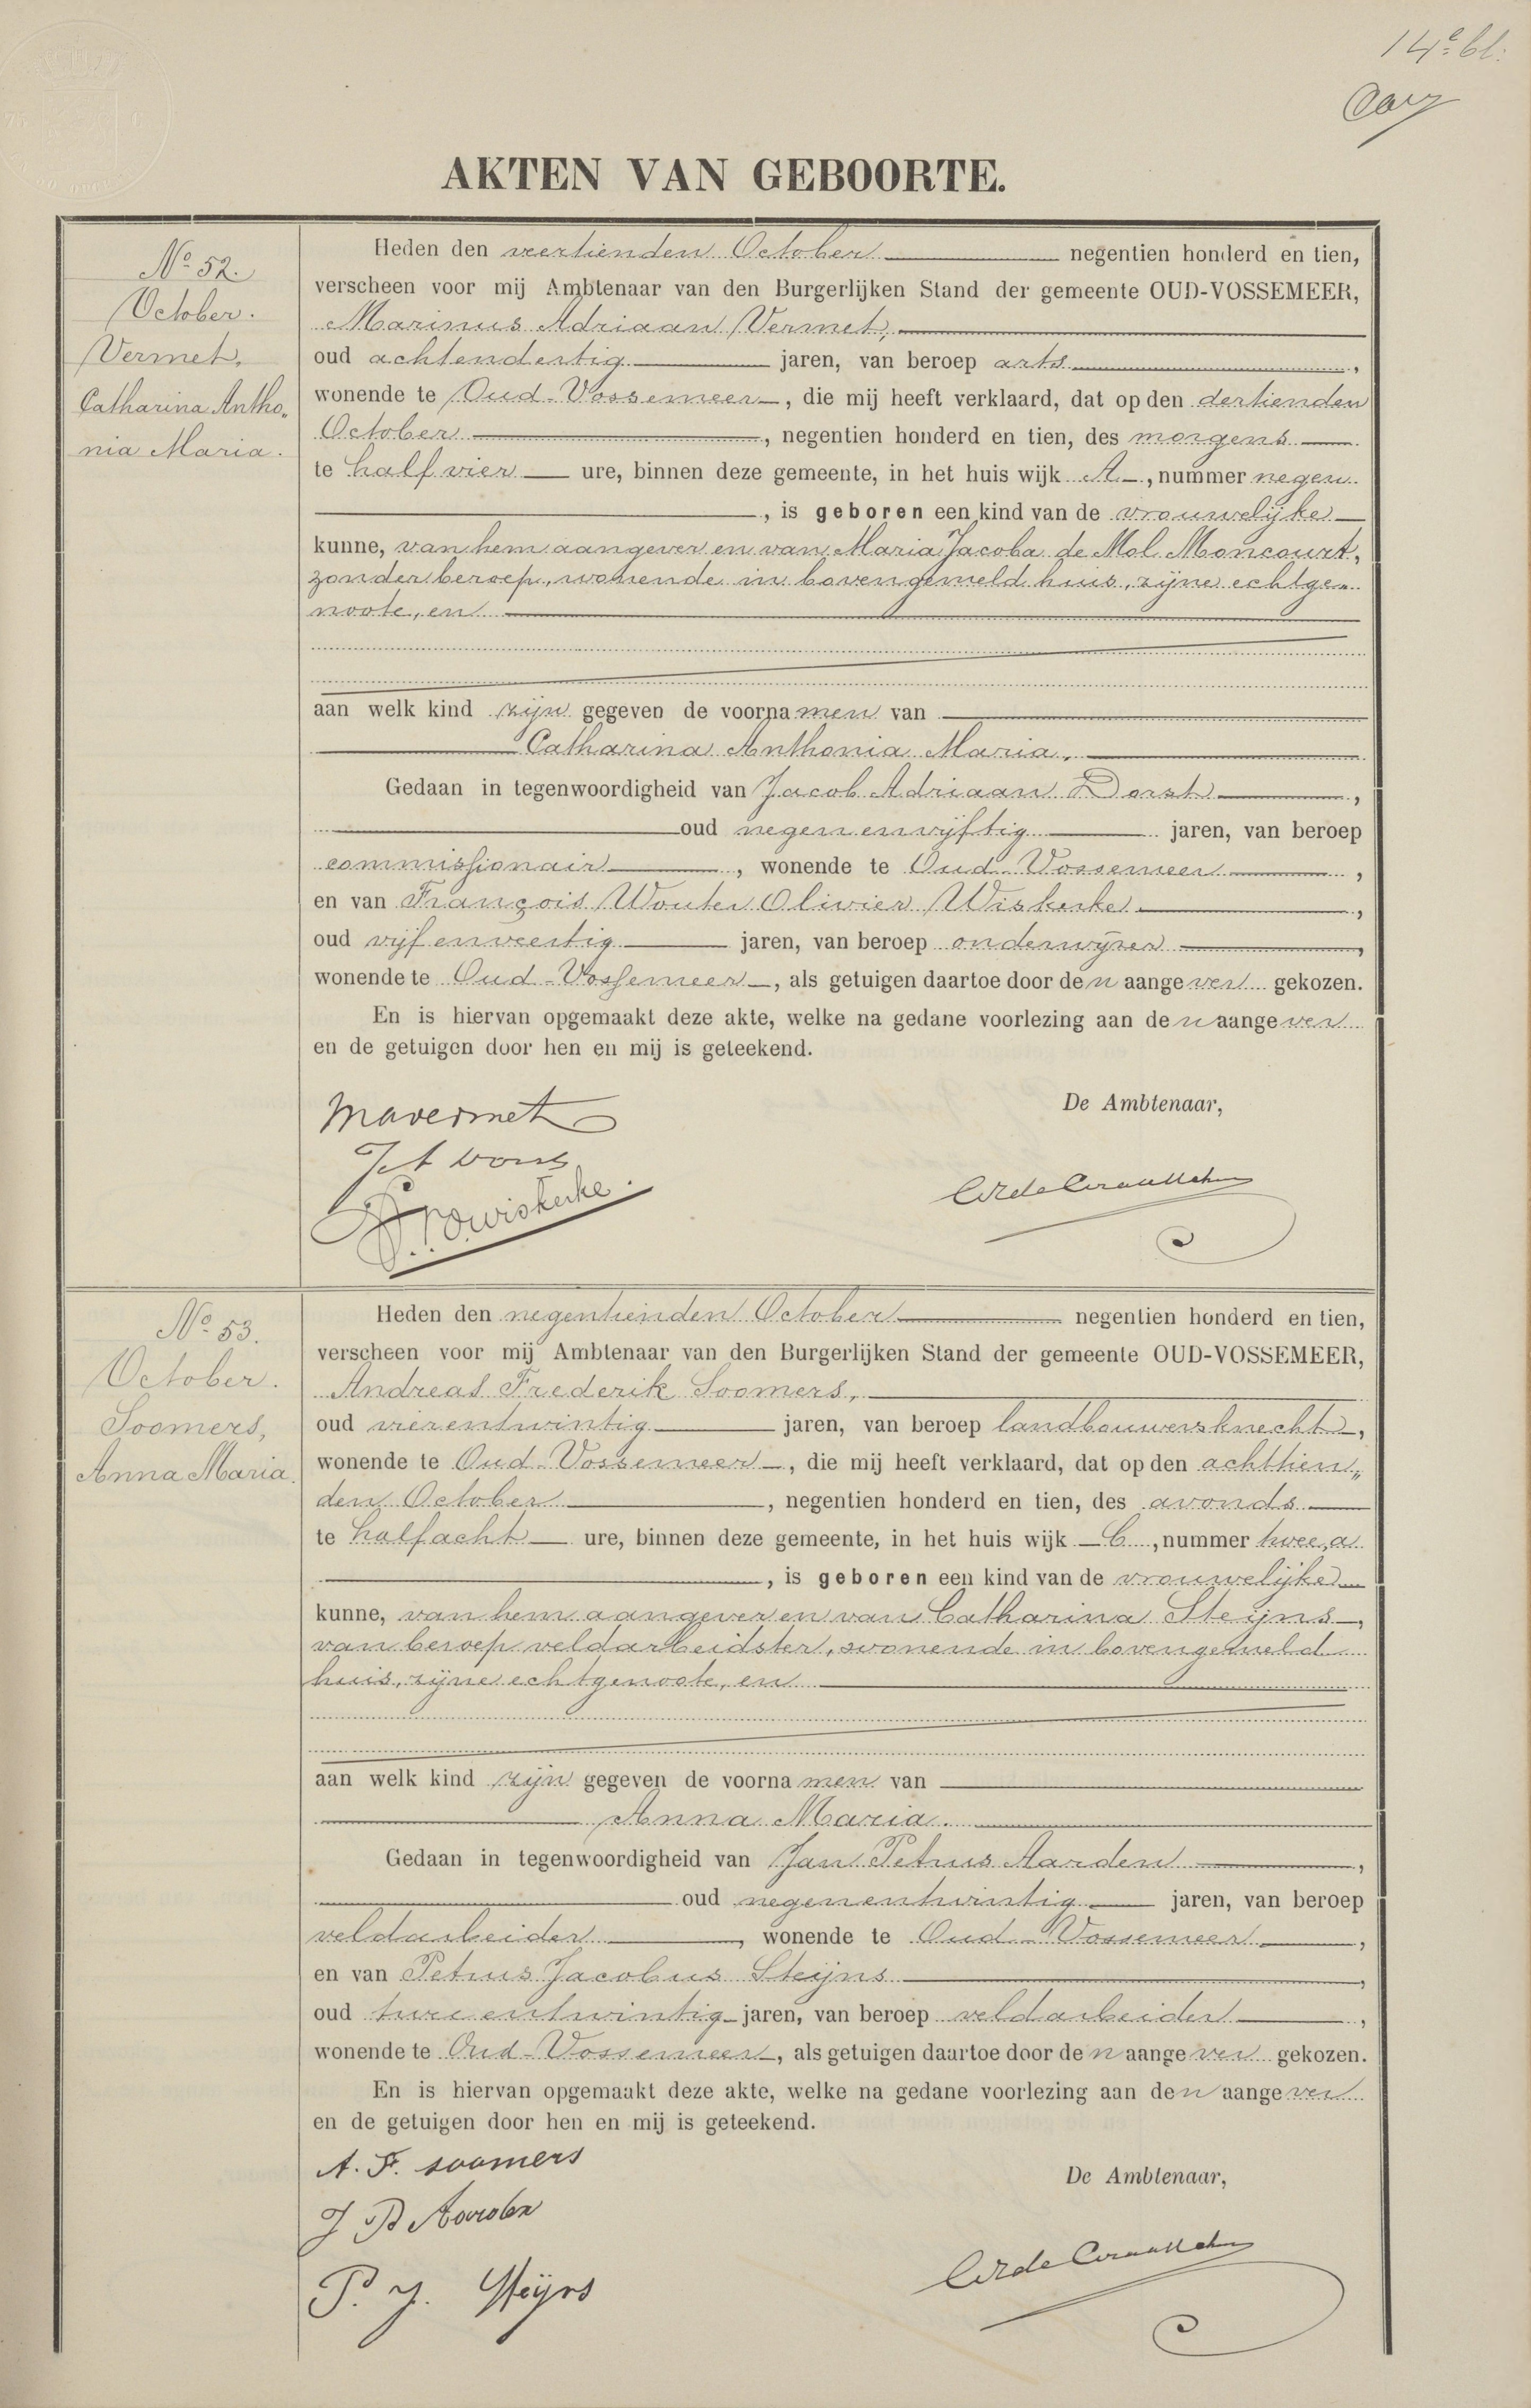 14e bl:
AKTEN VAN GEBOORTE.
No 52.
October.
Vermet,
Catharina Antho„
nia Maria.
Heden den veertienden October negentien honderd en tien,
verscheen voor mij Ambtenaar van den Burgerlijken Stand der gemeente OUD-VOSSEMEER,
Marinus Adriaan Vermet,
oud achtendertig jaren, van beroep arts,
wonende te Oud-Vossemeer, die mij heeft verklaard, dat op den dertienden
October, negentien honderd en tien, des morgens
te half vier ure, binnen deze gemeente, in het huis wijk A, nummer negen
, is geboren een kind van de vrouwelijke
kunne, van hem aangever en van Maria Jacoba de Mol Moncourt,
zonder beroep, wonende in bovengemeld huis, zijne echtge„
noote, en
aan welk kind zijn gegeven de voornamen van
Catharina Anthonia Maria.
Gedaan in tegenwoordigheid van Jacob Adriaan Dorst,
oud negenenvijftig jaren, van beroep
commissionair, wonende te Oud-Vossemeer,
en van François Wouter Olivier Wiskerke,
oud vijfenveertig jaren, van beroep onderwijzer,
wonende te Oud-Vossemeer, als getuigen daartoe door den aangever gekozen.
En is hiervan opgemaakt deze akte, welke na gedane voorlezing aan den aangever
en de getuigen door hen en mij is geteekend.
De Ambtenaar,
MAVermet
JA Dorst
FWOWiskerke.
No 53.
October.
Soomers,
Anna Maria.
Heden den negentienden October negentien honderd en tien,
verscheen voor mij Ambtenaar van den Burgerlijken Stand der gemeente OUD-VOSSEMEER,
Andreas Frederik Soomers,
oud vierentwintig jaren, van beroep landbouwersknecht,
wonende te Oud-Vossemeer, die mij heeft verklaard, dat op den achttien„
den October, negentien honderd en tien, des avonds
te halfacht ure, binnen deze gemeente, in het huis wijk C, nummer twee, a
, is geboren een kind van de vrouwelijke
kunne, van hem aangever en van Catharina Steijns,
van beroep veldarbeidster, wonende in bovengemeld
huis, zijne echtgenoote, en
aan welk kind zijn gegeven de voornamen van
Anna Maria.
Gedaan in tegenwoordigheid van Jan Petrus Aarden,
oud negenentwintig jaren, van beroep
veldarbeider, wonende te Oud-Vossemeer,
en van Petrus Jacobus Steijns,
oud tweeentwintig jaren, van beroep veldarbeider,
wonende te Oud-Vossemeer, als getuigen daartoe door den aangever gekozen.
En is hiervan opgemaakt deze akte, welke na gedane voorlezing aan den aangever
en de getuigen door hen en mij is geteekend.
De Ambtenaar,
A. F. soomers
J P Aarden
P. J. Steijns